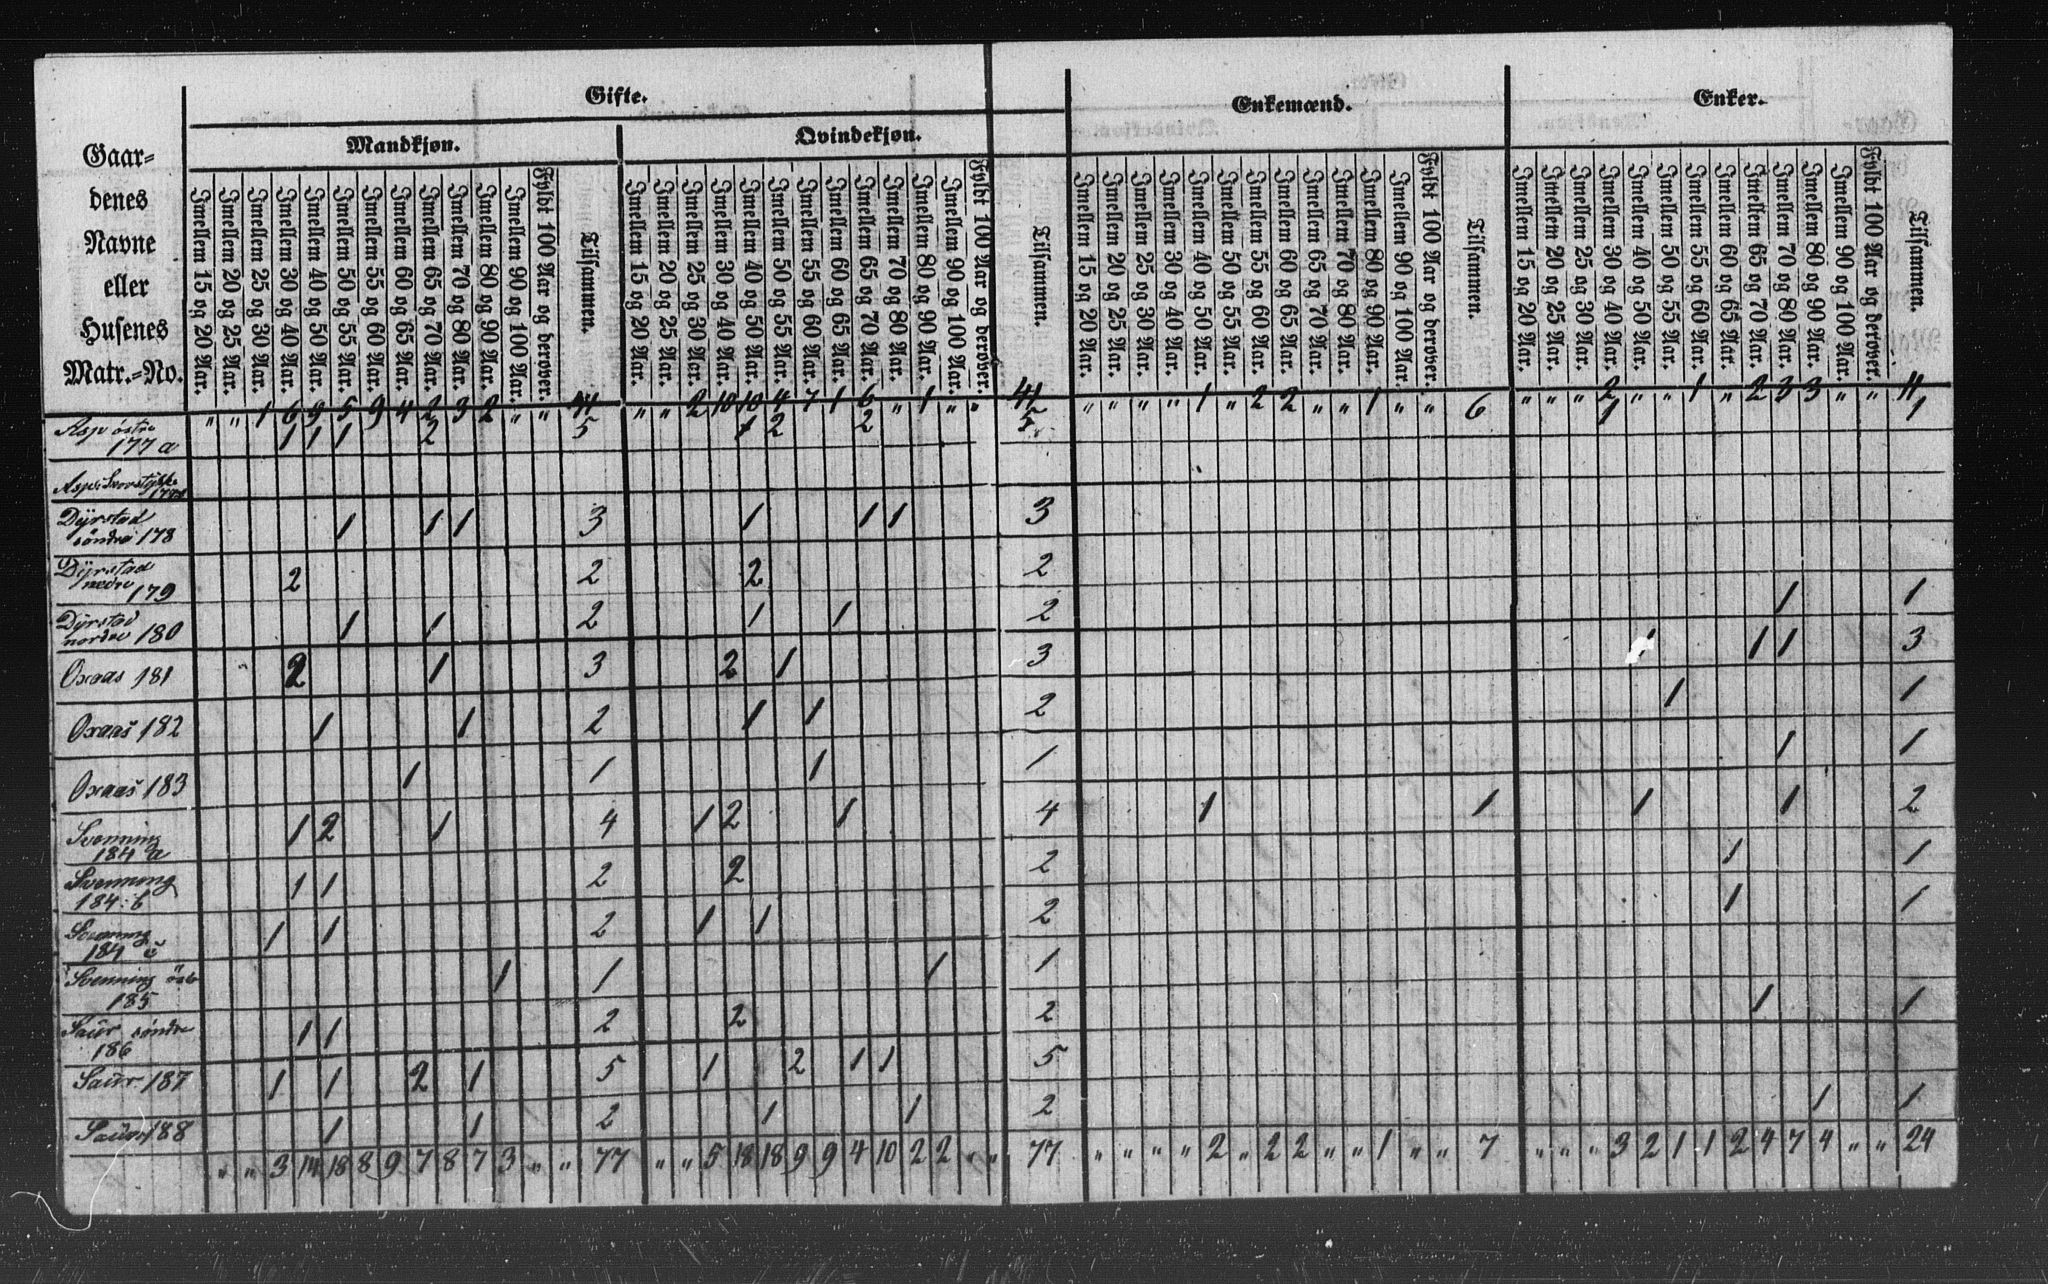 Gifte. Enkemænd. Enker.
Mandkjøn. Qvindekjøn.
Gaar-
denes
Navne
eller
Husenes
Matr.-No.
Imellem 15 og 20 Aar. Imellem 20 og 25 Aar. Imellem 25 og 30 Aar. Imellem 30 og 40 Aar. Imellem 40 og 50 Aar. Imellem 50 og 55 Aar. Imellem 55 og 60 Aar. Imellem 60 og 65 Aar. Imellem 65 og 70 Aar. Imellem 70 og 80 Aar. Imellem 80 og 90 Aar. Imellem 90 og 100 Aar. Fyldt 100 Aar og derover. Tilsammen.
Imellem 15 og 20 Aar. Imellem 20 og 25 Aar. Imellem 25 og 30 Aar. Imellem 30 og 40 Aar. Imellem 40 og 50 Aar. Imellem 50 og 55 Aar. Imellem 55 og 60 Aar. Imellem 60 og 65 Aar. Imellem 65 og 70 Aar. Imellem 70 og 80 Aar. Imellem 80 og 90 Aar. Imellem 90 og 100 Aar. Fyldt 100 Aar og derover. Tilsammen.
Imellem 15 og 20 Aar. Imellem 20 og 25 Aar. Imellem 25 og 30 Aar. Imellem 30 og 40 Aar. Imellem 40 og 50 Aar. Imellem 50 og 55 Aar. Imellem 55 og 60 Aar. Imellem 60 og 65 Aar. Imellem 65 og 70 Aar. Imellem 70 og 80 Aar. Imellem 80 og 90 Aar. Imellem 90 og 100 Aar. Fyldt 100 Aar og derover. Tilsammen.
Imellem 15 og 20 Aar. Imellem 20 og 25 Aar. Imellem 25 og 30 Aar. Imellem 30 og 40 Aar. Imellem 40 og 50 Aar. Imellem 50 og 55 Aar. Imellem 55 og 60 Aar. Imellem 60 og 65 Aar. Imellem 65 og 70 Aar. Imellem 70 og 80 Aar. Imellem 80 og 90 Aar. Imellem 90 og 100 Aar. Fyldt 100 Aar og derover. Tilsammen.
" " 1 6 9 5 9 4 2 3 2 " " 41 " " 2 10 10 4 7 1 6 " 1 " " 41 " " " " 1 " 2 2 " " 1 " " 6 " " " 2 " " 1 " 2 3 3 " " 11
Asp östre
177 a 1 1 1 2 5 1 2 2 5 1 1
Dÿrstad
söndre 178 1 1 1 3 1 1 1 3
Dÿrstad
nedre 179 2 2 2 2
Dÿrstad
nordre 180 1 1 2 1 1 2 1 1
Oxaas 181 2 1 3 2 1 3 1 1 1 3
Oxaas 182 1 1 2 1 1 2 1 1
Oxaas 183 1 1 1 1 1 1
Svenning
184 a 1 2 1 4 1 2 1 4 1 1 1 1 2
Svenning
184. b 1 1 2 2 2 1 1
Svenning
184 c 1 1 2 1 1 2 1 1
Svenning östre
185 1 1 1 1
Saur söndre
186 1 1 2 2 2 1 1
Saur 187 1 1 2 1 5 1 2 1 1 5
Saur 188 1 1 2 1 1 2 1 1
" " 3 14 18 8 9 7 8 7 3 " " 77 " " 5 18 18 9 9 4 10 2 2 " " 77 " " " " 2 " 2 2 " " 1 " " 7 " " " 3 2 1 1 2 4 7 4 " " 24